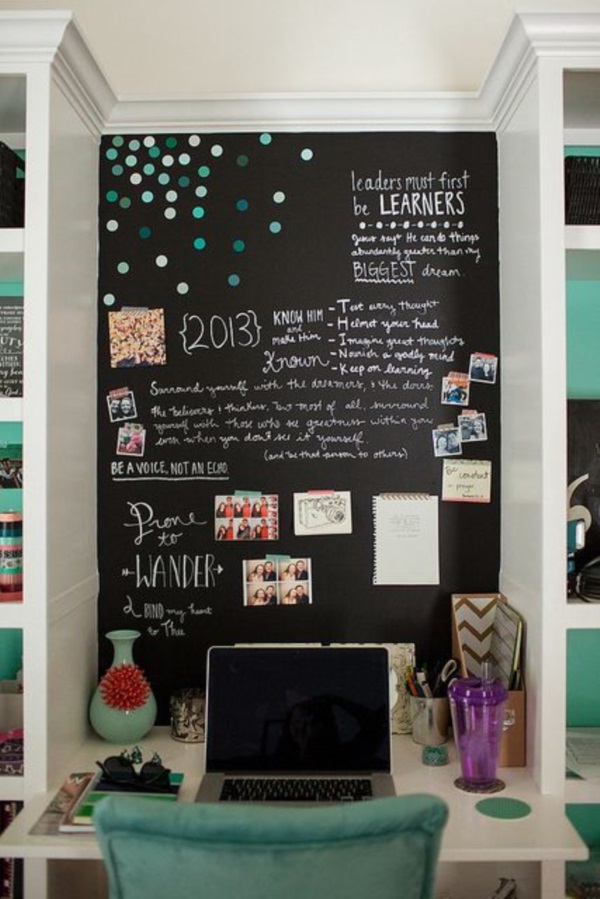 leaders must first
be LEARNERS
Jesus says He can do things
abundantly greater than my
BIGGEST dream.
{2013}
KNOW HIM
and
make Him
Known
- Test every thought
- Helmet your head
- Imagine great thoughts
- Nourish a godly mind
- Keep on learning
Surround yourself with the dreamers, & the doers
The believers & thinkers, but most of all, surround
yourself with those who see greatness within you
even when you don't see it yourself.
(and be that person to others)
BE A VOICE, NOT AN ECHO.
Be constant
in prayer
Prone
to
WANDER
BIND my heart
to Thee